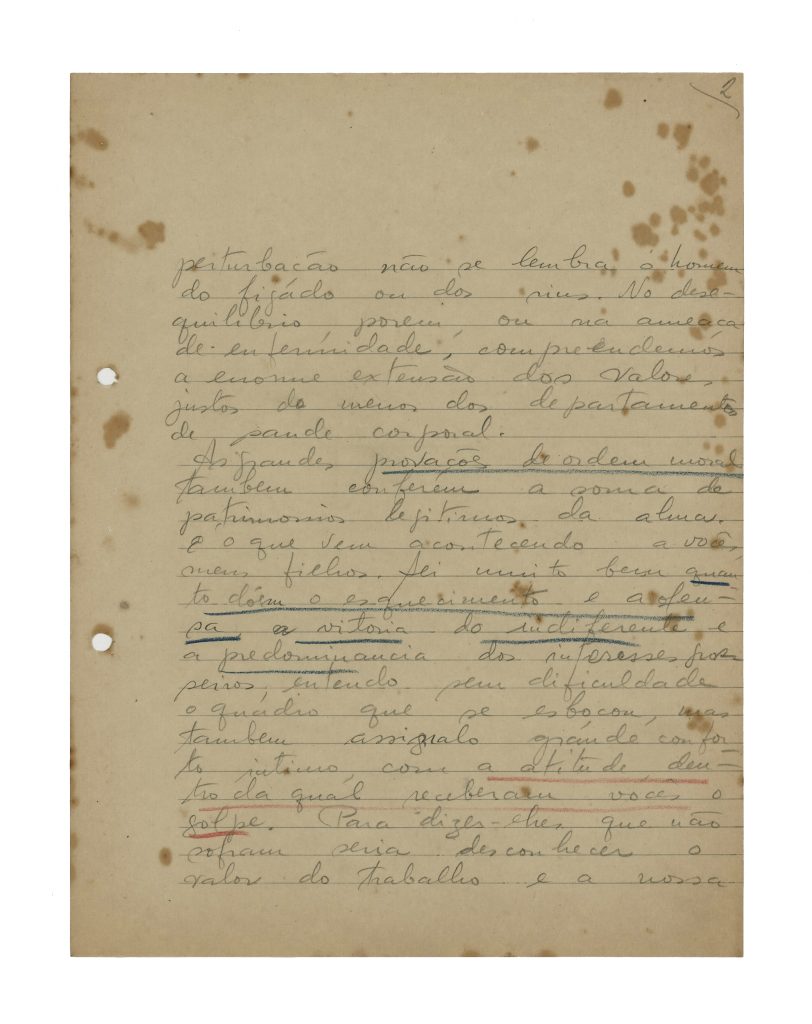 2
perturbação não se lembra o homem
do figádo ou dos rins. No dese-
quilibrio, porem, ou na ameaça
de enfermidade, comprehendemos
a enorme extensão dos valores
justos do menos dos departamentos
de saude corporal.
As grandes provações de ordem moral
tambem conferem a soma de
patrimonios legitimos da alma.
E o que vem acontecendo a vocês,
meus filhos. Sei muito bem quan
to dóem o esquecimento e a ofen-
sa a vitoria do indiferente e
a predominancia dos interesses gros
seiros, entendo sem dificuldade
o quadro que se esbocou, mas
tambem assignalo grande confor
to intimo, com a atitude den-
tro da qual receberam vocês o
golpe. Para dizer-lhes que não
sofram seria desconhecer o
valor do trabalho e a nossa